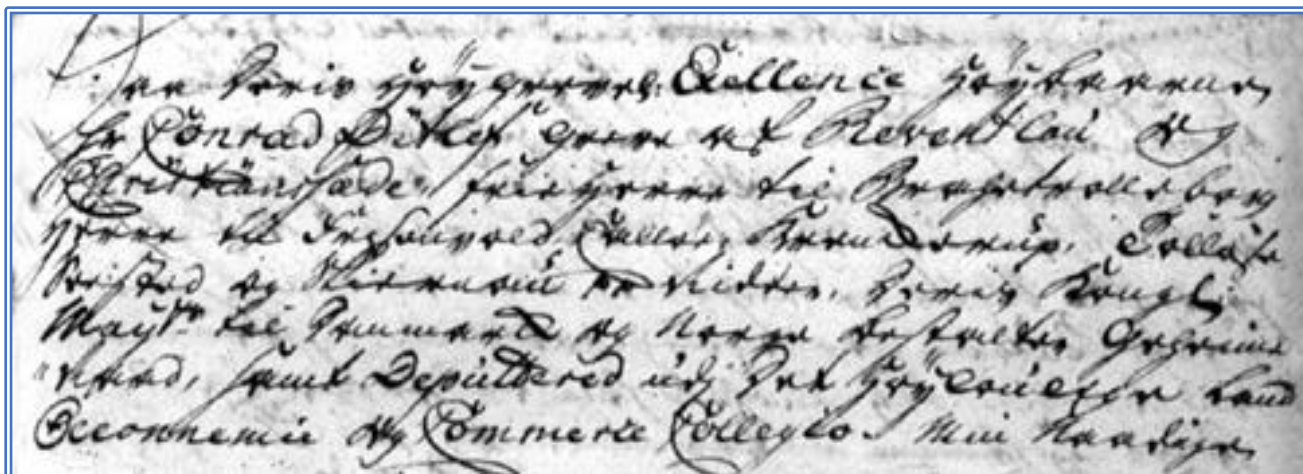 Paa Deris Høygrevel: Excellence Høybaarne
Hr Conrad Ditlef Greve af Reventlau Og
Christianssæde, frie Herre til Brahetrolleborg
Herre til Krenckerup, Tølløse
og Deris Kongl:
Mayts til Danmarck og Norge Bestalter Geheime
Raad, samt Deputtered udj Det Høylovlige Land
Oeconnemie Og Commerce Collegio. Min Naadige